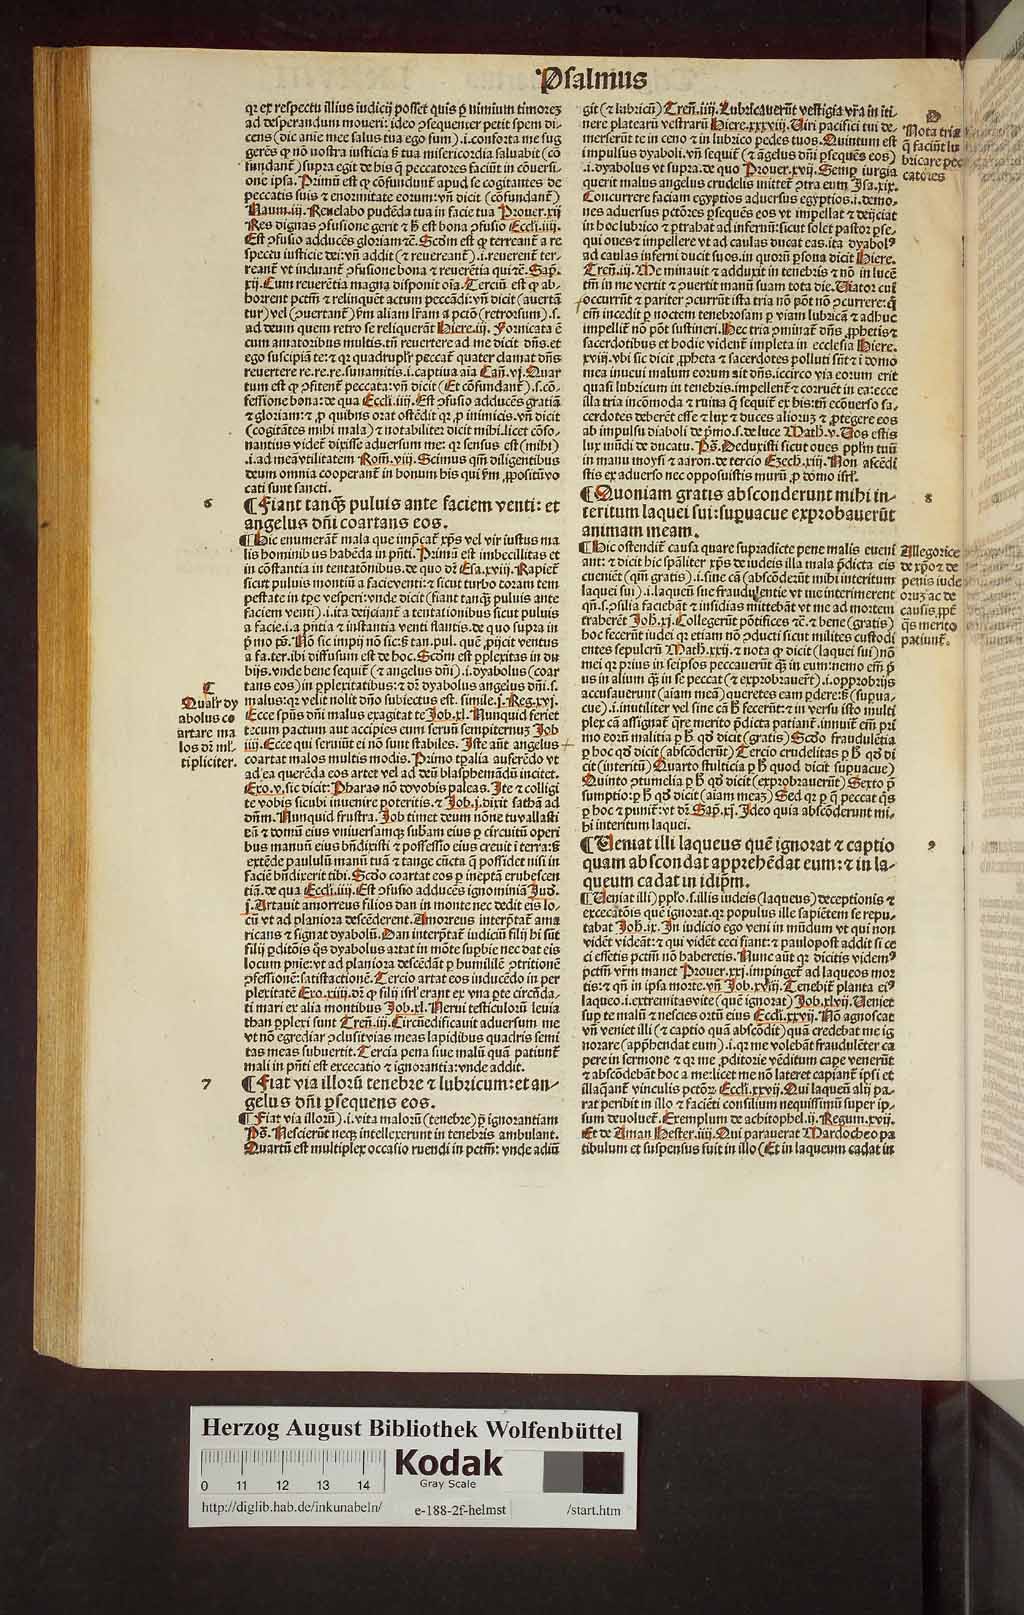 Psalmus
qꝛ ex respectu illius iudicij posset quis ꝑ nimium timorez
ad desperandum moueri: ideo ꝯsequenter petit spem di-
cens (dic anie mee salus tua ego sum) .i. conforta me sug
gerēs qꝛ nō nostra iusticia s̄ tua misericordia saluabit (cō
fundant̄) supra egit de his q̄ peccatores faciūt in cōuersi-
one ipsa. Primū est qꝛ cōfundunt̄ apud se cogitantes de
peccatis suis ⁊ enormitate eorum: vn̄ dicit (cōfundant̄)
Naum .iij. Reuelabo pudēda tua in facie tua Prouer .xij
Res dignas ꝯfusione gerit ⁊ h̄ est bona ꝯfusio Eccli .iiij.
Est ꝯfusio adducēs gloriam ⁊c̄. Scd̄m est qꝛ terreant̄ a re
spectu iusticie dei: vn̄ addit (⁊ reuereant̄) .i. reuerent̄ ter-
reant̄ vt induant̄ ꝯfusione bona ⁊ reuerētia qui ⁊c̄. Sap̄.
xij. Cum reuerētia magna disponit oīa. Terciū est qꝛ ab-
horrent pctm̄ ⁊ relinquēt actum peccādi: vn̄ dicit (auertā
tur) vel (ꝯuertant̄) ẜm aliam lr̄am a pctō (retrorsum) .s.
ad deum quem retro se reliquerāt Hiere .iij. Fornicata ē
cum amatoribus multis. tn̄ reuertere ad me dicit dn̄s. et
ego suscipiā te: ⁊ qꝛ quadruplr̄ peccat̄ quater clamat dn̄s
reuertere re. re. re. sunamitis .i. captiua aīa Cān̄ .vj. Quar
tum est qꝛ ꝯfitent̄ peccata: vn̄ dicit (Et cōfundant̄) .s. cō-
fessione bona: de qua Eccli .iiij. Est ꝯfusio adducēs gratiā
⁊ gloriam: ⁊ ꝓ quibus orat ostēdit qꝛ ꝓ inimicis. vn̄ dicit
(cogitātes mihi mala) ⁊ notabiliter dicit mihi. licet cōso-
nantius videt̄ dixisse aduersum me: qꝛ sensus est (mihi)
.i. ad meā vtilitatem Rom̄ .viij. Scimus qm̄ diligentibus
deum omnia cooperant̄ in bonum his qui ẜm ꝓpositū vo
cati sunt sancti.
6
¶ Fiant tanqȝ puluis ante faciem venti: et
angelus dn̄i coartans eos.
¶ Hic enumerat̄ mala que imp̄cat̄ xp̄s vel vir iustus ma
lis hominibus habēda in pn̄ti. Primū est imbecillitas et
in cōstantia in tentatōnibus. de quo dr̄ Esa .xvij. Rapiet̄
sicut puluis montiū a facie venti: ⁊ sicut turbo coram tem
pestate in tpe vesperi: vnde dicit (fiant tanqȝ puluis ante
faciem venti) .i. ita deijciant̄ a tentationibus sicut puluis
a facie .i. a pn̄tia ⁊ instantia venti flantis. de quo supra in
p̄mo ps̄. Nō sic impij nō sic: s̄ tan. pul. quē ꝓijcit ventus
a fa. ter. ibi diffusum est de hoc. Scd̄m est pplexitas in du
bijs. vnde bene sequit̄ (⁊ angelus dn̄i) .i. dyabolus (coar
tans eos) in ꝑplexitatibus: ⁊ dr̄ dyabolus angelus dn̄i .s.
malus: qꝛ velit nolit dn̄o subiectus est. simile .j. Reg .xvj.
Ecce spūs dn̄i malus exagitat te Job .xl. Nunquid feriet
tecum pactum aut accipies eum seruū sempiternuȝ Job
iiij. Ecce qui seruiūt ei nō sunt stabiles. Iste aūt angelus
coartat malos multis modis. Primo tpalia auferēdo vt
ad ea querēda eos artet vel ad deū blasphemādū incitet.
Exo .v. sic dicit: Pharao nō do vobis paleas. Ite ⁊ colligi
te vobis sicubi inuenire poteritis. ⁊ Job .j. dixit sathā ad
dn̄m. Nunquid frustra Job timet deum nōne tu vallasti
eū ⁊ domū eius vniuersamqȝ subam eius ꝑ circuitū operi
bus manuū eius bn̄dixisti ⁊ possessio eius creuit i terra: s̄
extēde paululū manū tuā ⁊ tange cūcta q̄ possidet nisi in
faciē bn̄dixerit tibi. Scd̄o coartat eos ꝑ ineptā erubescen
tiā. de qua Eccli .iiij. Est ꝯfusio adducēs ignominiā Jud̄.
j. Artauit amorreus filios dan in monte nec dedit eis lo-
cū vt ad planiora descēderent. Amoreus interp̄tat̄ ama
ricans ⁊ signat dyabolū. Dan interp̄tat̄ iudiciū filij hi sūt
filij ꝑditōis qȝs dyabolus artat in mōte supbie nec dat eis
locum pn̄ie: vt ad planiora descēdāt ꝑ humilē ꝯtritionē
ꝯfessionē: satisfactionē. Tercio artat eos inducēdo in per
plexitatē Exo .xiiij. dr̄ qꝛ filij isrl̄ erant ex vna pte circūda-
ti mari ex alia montibus Job .xl. Nerui testiculorū leuia
than ꝑplexi sunt Tren̄ .iij. Circūedificauit aduersum me
vt nō egrediar ꝯclusit vias meas lapidibus quadris semi
tas meas subuertit. Tercia pena siue malū quā patiunt̄
mali in pn̄ti est excecatio ⁊ ignorantia: vnde addit.
C
Qualr̄ dy
abolus co
artare ma
los dr̄ ml̄-
tipliciter.
7
¶ Fiat via illorū tenebre ⁊ lubricum: et an-
gelus dn̄i ꝑsequens eos.
¶ Fiat via illorū) .i. vita malorū (tenebre) ꝑ ignorantiam
Ps̄. Nescierūt neqȝ intellexerunt in tenebris ambulant.
Quartū est multiplex occasio ruendi in pctm̄: vnde adiū
git (⁊ lubricū) Tren̄ .iiij. Lubricauerūt vestigia vr̄a in iti-
nere platearū vestrarū Hiere .xxxviij. Uiri pacifici tui de-
merserūt te in ceno ⁊ in lubrico pedes tuos. Quintum est
impulsus dyaboli. vn̄ sequit̄ (⁊ āgelus dn̄i ꝑsequēs eos)
.i. dyabolus vt supra. de quo Prouer .xvij. Semꝑ iurgia
querit malus angelus crudelis mittet̄ ꝯtra eum Isa .xix.
Concurrere faciam egyptios aduersus egyptios .i. demo-
nes aduersus pctōres ꝑsequēs eos vt impellat ⁊ deijciat
in hoc lubrico ⁊ ꝑtrahat ad infernū: sicut solet pastor ꝑse-
qui oues ⁊ impellere vt ad caulas ducat eas. ita dyabolꝰ
ad caulas inferni ducit suos. in quorū ꝑsona dicit Hiere.
Tren̄ .iij. Me minauit ⁊ adduxit in tenebris ⁊ nō in lucē
tm̄ in me vertit ⁊ ꝯuertit manū suam tota die. Uiator cui
occurrūt ⁊ pariter ꝯcurrūt ista tria nō pōt nō ꝯcurrere: q̄
em̄ incedit ꝑ noctem tenebrosam ꝑ viam lubricā ⁊ adhuc
impellit̄ nō pōt sustineri. Hec tria ꝯminat̄ dn̄s ꝓphetis ⁊
sacerdotibus et hodie vident̄ impleta in ecclesia Hiere.
xviij. vbi sic dicit ꝓpheta ⁊ sacerdotes polluti sūt ⁊ i domo
mea inueni malum eorum ait dn̄s. iccirco via eorum erit
quasi lubricum in tenebris. impellent̄ ⁊ corruēt in ea: ecce
illa tria incōmoda ⁊ ruina q̄ sequit̄ ex his: tn̄ ecōuerso sa-
cerdotes deberēt esse ⁊ lux ⁊ duces alioruȝ ⁊ ꝓtegere eos
ab impulsu diaboli de p̄mo .s. de luce Math .v. Uos estis
lux mūdi de ducatu. Ps̄. Deduxisti sicut oues pplm̄ tuū
in manu moysi ⁊ aaron. de tercio Ezech .xiij. Non ascēdi
stis ex aduerso nec opposuistis murū ꝓ domo isrl̄.
D
Nota tria
q̄ faciūt lu
bricare pec
catores
8
¶ Quoniam gratis absconderunt mihi in-
teritum laquei sui: supuacue exprobauerūt
animam meam.
¶ Hic ostendit̄ causa quare supradicte pene malis eueni
ant: ⁊ dicit hic sp̄aliter xp̄s de iudeis illa mala p̄dicta eis
cueniēt (qm̄ gratis) .i. sine cā (abscōderūt mihi interitum
laquei sui) .i. laqueū sue fraudulentie vt me interimerent
qn̄ .s. ꝯsilia faciebāt ⁊ insidias mittebāt vt me ad mortem
traherēt Joh̄ .xj. Collegerūt pōtifices ⁊c̄. ⁊ bene (gratis)
hoc fecerūt iudei qꝛ etiam nō ꝯducti sicut milites custodi
entes sepulcrū Math .xxij. ⁊ nota qꝛ dicit (laquei sui) nō
mei qꝛ prius in seipsos peccauerūt qȝ in eum: nemo em̄ ꝑ
us in alium qȝ in se peccat (⁊ exprobauert̄) .i. opprobrijs
accusauerunt (aiam meā) querētes eam pdere: s̄ (supua-
cue) .i. inutiliter vel sine cā h̄ fecerūt: ⁊ in versu isto multi
plex cā assignat̄ qre merito p̄dicta patiant̄. innuit em̄ pri
mo eorū malitia ꝑ h̄ qd̄ dicit (gratis) Scd̄o frauduletia
ꝑ hoc qd̄ dicit (abscōderūt) Tercio crudelitas ꝑ h̄ qd̄ di
cit (interitū) Quarto stulticia ꝑ h̄ quod dicit supuacue)
Quinto ꝯtumelia ꝑ h̄ qd̄ dicit (exprobauerūt) Sexto p̄
sumptio: ꝑ h̄ qd̄ dicit (aiam meaȝ) Sed qꝛ ꝑ q̄ peccat q̄s
ꝑ hoc ⁊ punit̄: vt dr̄ Sap̄ .xj. Ideo quia abscōderunt mi-
hi interitum laquei.
Allegorice
de xp̄o ⁊ de
penis iude
oruȝ ac de
causis ꝓpt̄
q̄s merito
patiunt̄.
9
¶ Ueniat illi laqueus quē ignorat ⁊ captio
quam abscondat apprehēdat eum: ⁊ in la-
queum cadat in idip̄m.
¶ Ueniat illi) pplo .s. illis iudeis (laqueus) deceptionis ⁊
excecatōis quē ignorat. qꝛ populus ille sapiētem se repu-
tabat Joh̄ .ix. In iudicio ego veni in mūdum vt qui non
vidēt videāt: ⁊ qui vidēt ceci fiant: ⁊ paulopost addit si ce
ci essetis pctm̄ nō haberetis. Nunc aūt qꝛ dicitis videmꝰ
pctm̄ vr̄m manet Prouer .xxj. impinget̄ ad laqueos mor
tis: ⁊ qn̄ in ipsa morte. vn̄ Job .xviij. Tenebit̄ planta eiꝰ
laqueo .i. extremitas vite (quē ignorat) Job .xlvij. Ueniet
sup te malū ⁊ nescies ortū eius Eccli .xxvij. Nō agnoscat
vn̄ veniet illi (⁊ captio quā abscōdit) quā credebat me ig
norare (apphendat eum) .i. qꝛ me volebāt fraudulēter ca
pere in sermone ⁊ qꝛ me ꝓditorie vēditum cape venerūt
⁊ abscōdebāt hoc a me: licet me nō lateret capiant̄ ipsi et
illaq̄ant̄ vinculis pctōȝ Eccli .xxvij. Qui laqueū alij pa-
rat peribit in illo ⁊ faciēti consilium nequissimū super ip-
sum deuoluet̄. Exemplum de achitophel .ij. Regum .xvij.
Et de Aman Hester .iiij. Qui parauerat Mardocheo pa
tibulum et suspensus fuit in illo (Et in laqueum cadat in
Herzog August Bibliothek Wolfenbüttel
0 11 12 13 14
Kodak
Gray Scale
http://diglib.hab.de/inkunabeln/ e-188-2f-helmst /start.htm